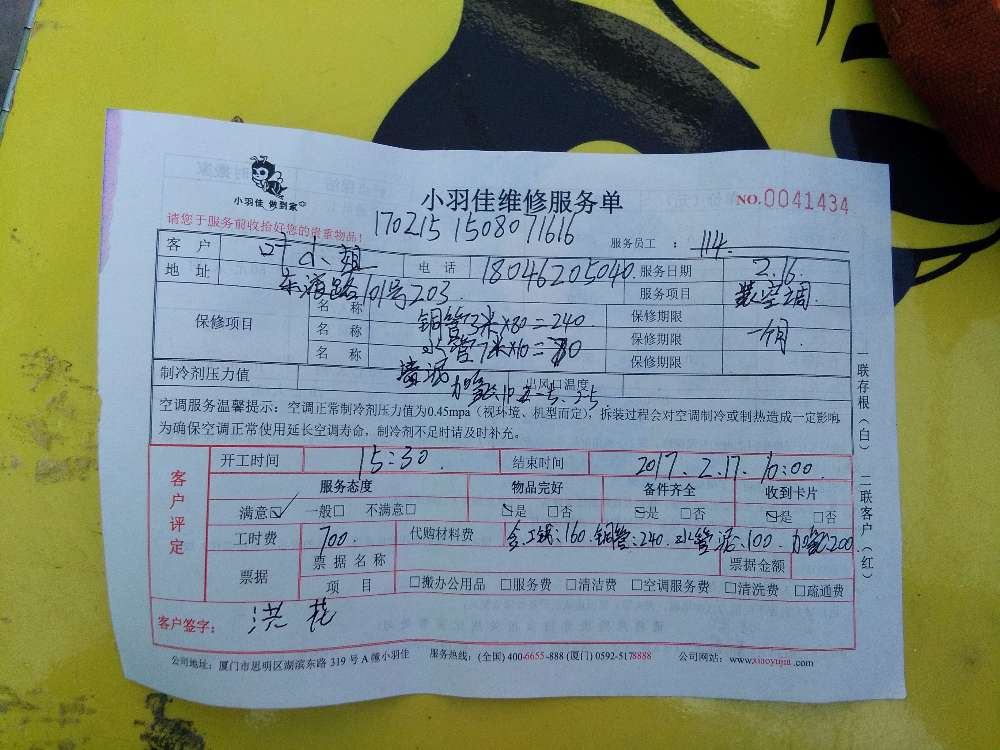 小羽佳 做到家
小羽佳维修服务单
NO.0041434
请您于服务前收拾好您的贵重物品!
170215 1508071616
服务员工 : 114.
客 户 叶小姐 电 话 18046205040 服务日期 2.16.
地 址 东浦路101号203. 服务项目 装空调
保修项目
名 称 铜管3米×80=240. 保修期限
名 称 水管7米×10= 保修期限 一个月
名 称 墙泥 保修期限
制冷剂压力值 出风口温度
空调服务温馨提示:空调正常制冷剂压力值为0.45mpa(视环境、机型而定),拆装过程会对空调制冷或制热造成一定影响,
为确保空调正常使用延长空调寿命,制冷剂不足时请及时补充。
客户评定
开工时间 15:30. 结束时间 2017.2.17.16:00
服务态度 物品完好 备件齐全 收到卡片
满意☑ 一般□ 不满意□ ☑是 □否 ☑是 □否 ☑是 □否
工时费 700. 代购材料费 160.铜管:240.水管泥:100.加氟:200
票据 票据名称 票据金额
项 目 □搬办公用品 □服务费 □清洁费 □空调服务费 □清洗费 □疏通费
客户签字: 洪花
公司地址:厦门市思明区湖滨东路 319 号 A 幢小羽佳 服务热线:(全国) 400-6655-888 (厦门) 0592-5178888 公司网站:www.xiaoyujia.com
一联存根(白) 二联客户(红)